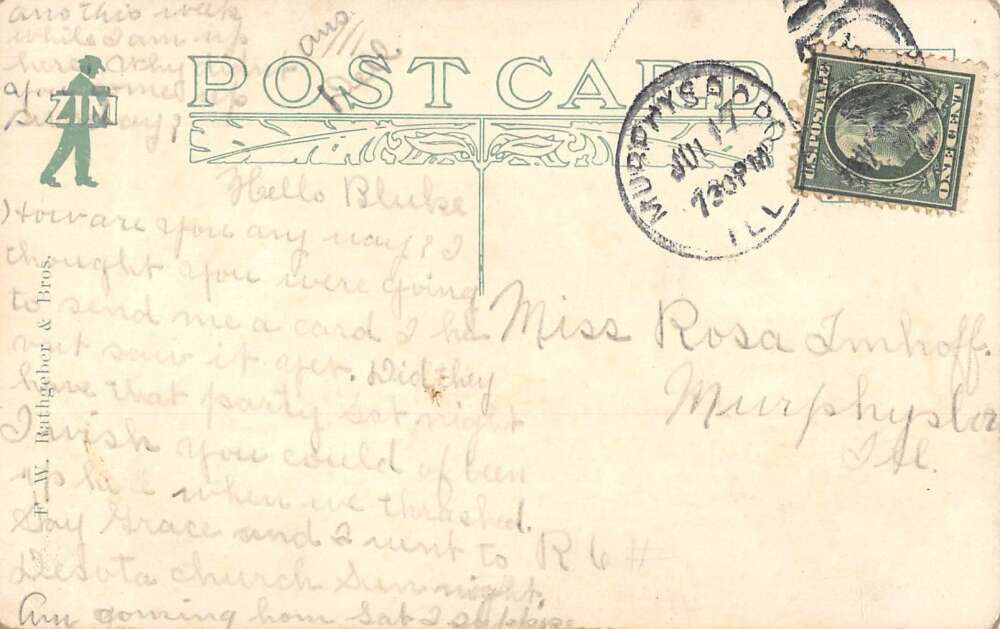 and this week
while I am up
here. Why don't
you come up
some day?
ans
here
ZIM
POST CARD
MURPHYSBORO
JUL 17
730PM
ILL
U.S. POSTAGE
ONE CENT
Hello Bluke
How are you any way? I
thought you were going
to send me a card I ha
not saw it yet. Did they
have that party Sat night
I wish you could of been
when we thrashed.
Say Grace and I went to
Desota church Sun night.
Am coming hom Sat I suppose
Miss Rosa Imhoff.
Murphysboro
Ill.
R 6 #
F. W. Rathgeber & Bros.